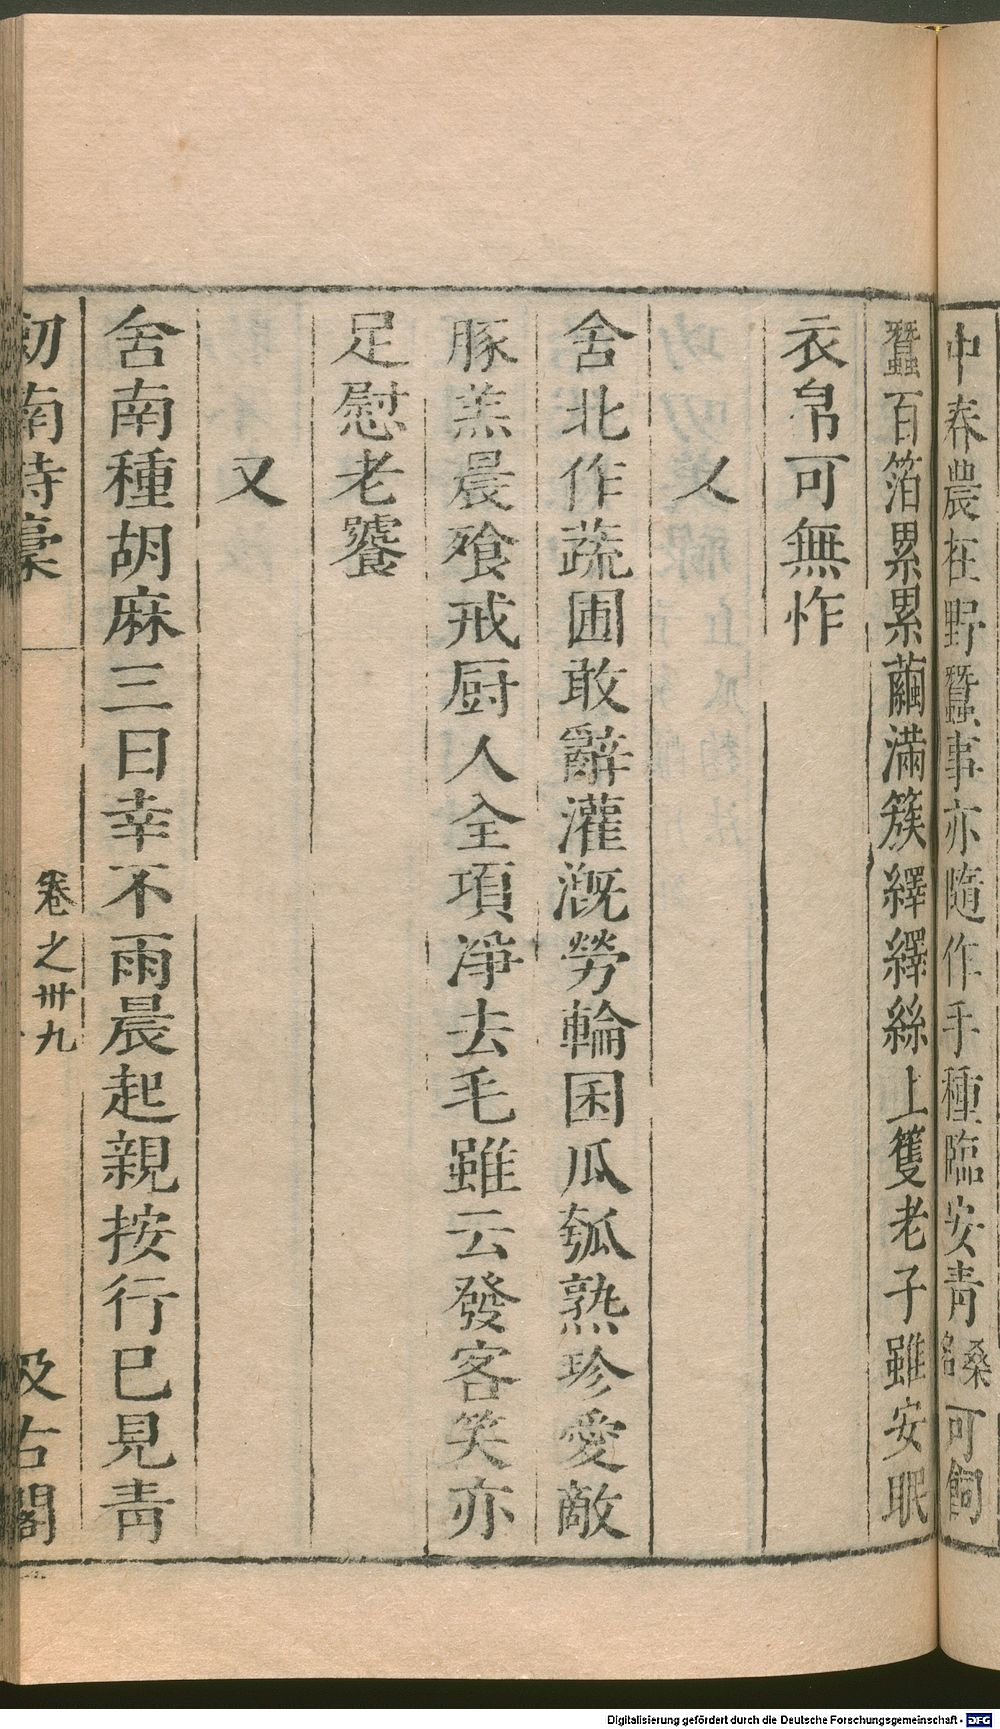 中春農在野蠶事亦隨作手種臨安青桑名可飼
蠶百箔累累繭滿簇繹繹絲上籰老子雖安眠
衣帛可無怍
又
舍北作蔬圃敢辭灌溉勞輪囷瓜瓠熟珍愛敵
豚羔晨飱戒厨人全項淨去毛雖云發客笑亦
足慰老饕
又
舍南種胡麻三日幸不雨晨起親按行已見青
劎南詩稾
卷之卅九
汲古閣
Digitalisierung gefördert durch die Deutsche Forschungsgemeinschaft - DFG